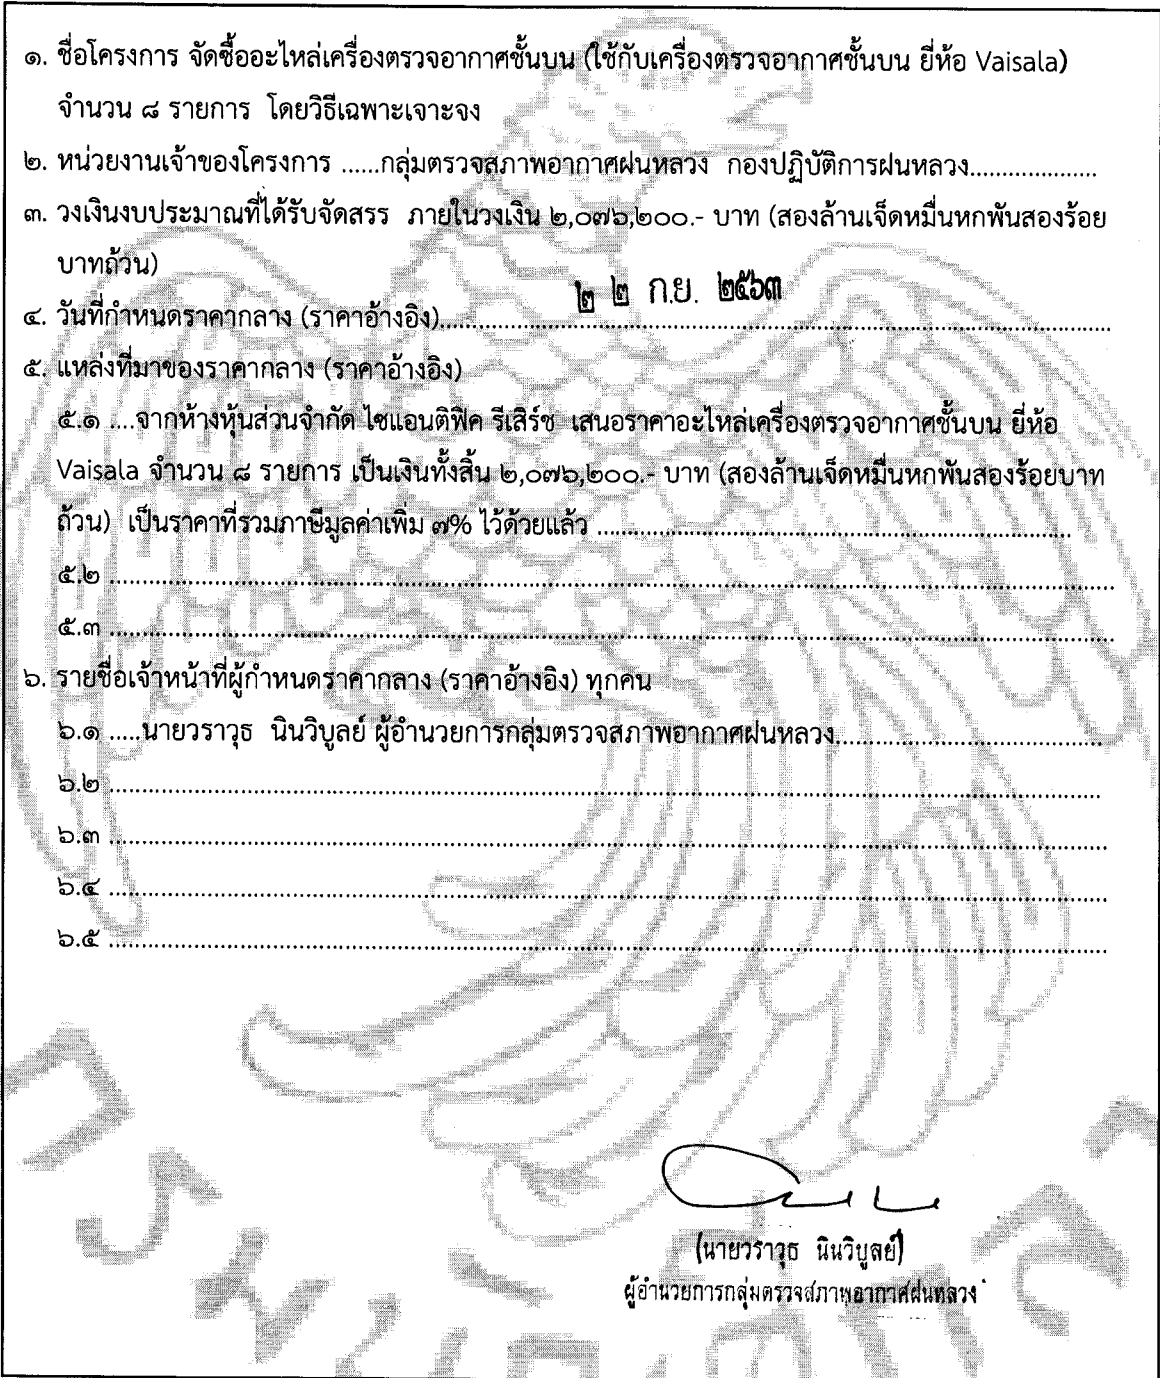 ๑. ชื่อโครงการ จัดซื้ออะไหล่เครื่องตรวจอากาศชั้นบน (ใช้กับเครื่องตรวจอากาศชั้นบน ยี่ห้อ Vaisala)
จำนวน ๘ รายการ โดยวิธีเฉพาะเจาะจง
๒. หน่วยงานเจ้าของโครงการ ......กลุ่มตรวจสภาพอากาศฝนหลวง กองปฏิบัติการฝนหลวง...................
๓. วงเงินงบประมาณที่ได้รับจัดสรร ภายในวงเงิน ๒,๐๗๖,๒๐๐.- บาท (สองล้านเจ็ดหมื่นหกพันสองร้อย
บาทถ้วน)
๒ ๒ ก.ย. ๒๕๖๓
๔. วันที่กำหนดราคากลาง (ราคาอ้างอิง)....................
๕. แหล่งที่มาของราคากลาง (ราคาอ้างอิง)
๕.๑ ....จากห้างหุ้นส่วนจำกัด ไซแอนติฟิค รีเสิร์ช เสนอราคาอะไหล่เครื่องตรวจอากาศชั้นบน ยี่ห้อ
Vaisala จำนวน ๘ รายการ เป็นเงินทั้งสิ้น ๒,๐๗๖,๒๐๐.- บาท (สองล้านเจ็ดหมื่นหกพันสองร้อยบาท
ถ้วน) เป็นราคาที่รวมภาษีมูลค่าเพิ่ม ๗% ไว้ด้วยแล้ว ....................
๕.๒ ....................
๕.๓ ....................
๖. รายชื่อเจ้าหน้าที่ผู้กำหนดราคากลาง (ราคาอ้างอิง) ทุกคน
๖.๑ .....นายวราวุธ นินวิบูลย์ ผู้อำนวยการกลุ่มตรวจสภาพอากาศฝนหลวง....................
๖.๒ ....................
๖.๓ ....................
๖.๔ ....................
๖.๕ ....................
(นายวราวุธ นินวิบูลย์)
ผู้อำนวยการกลุ่มตรวจสภาพอากาศฝนหลวง